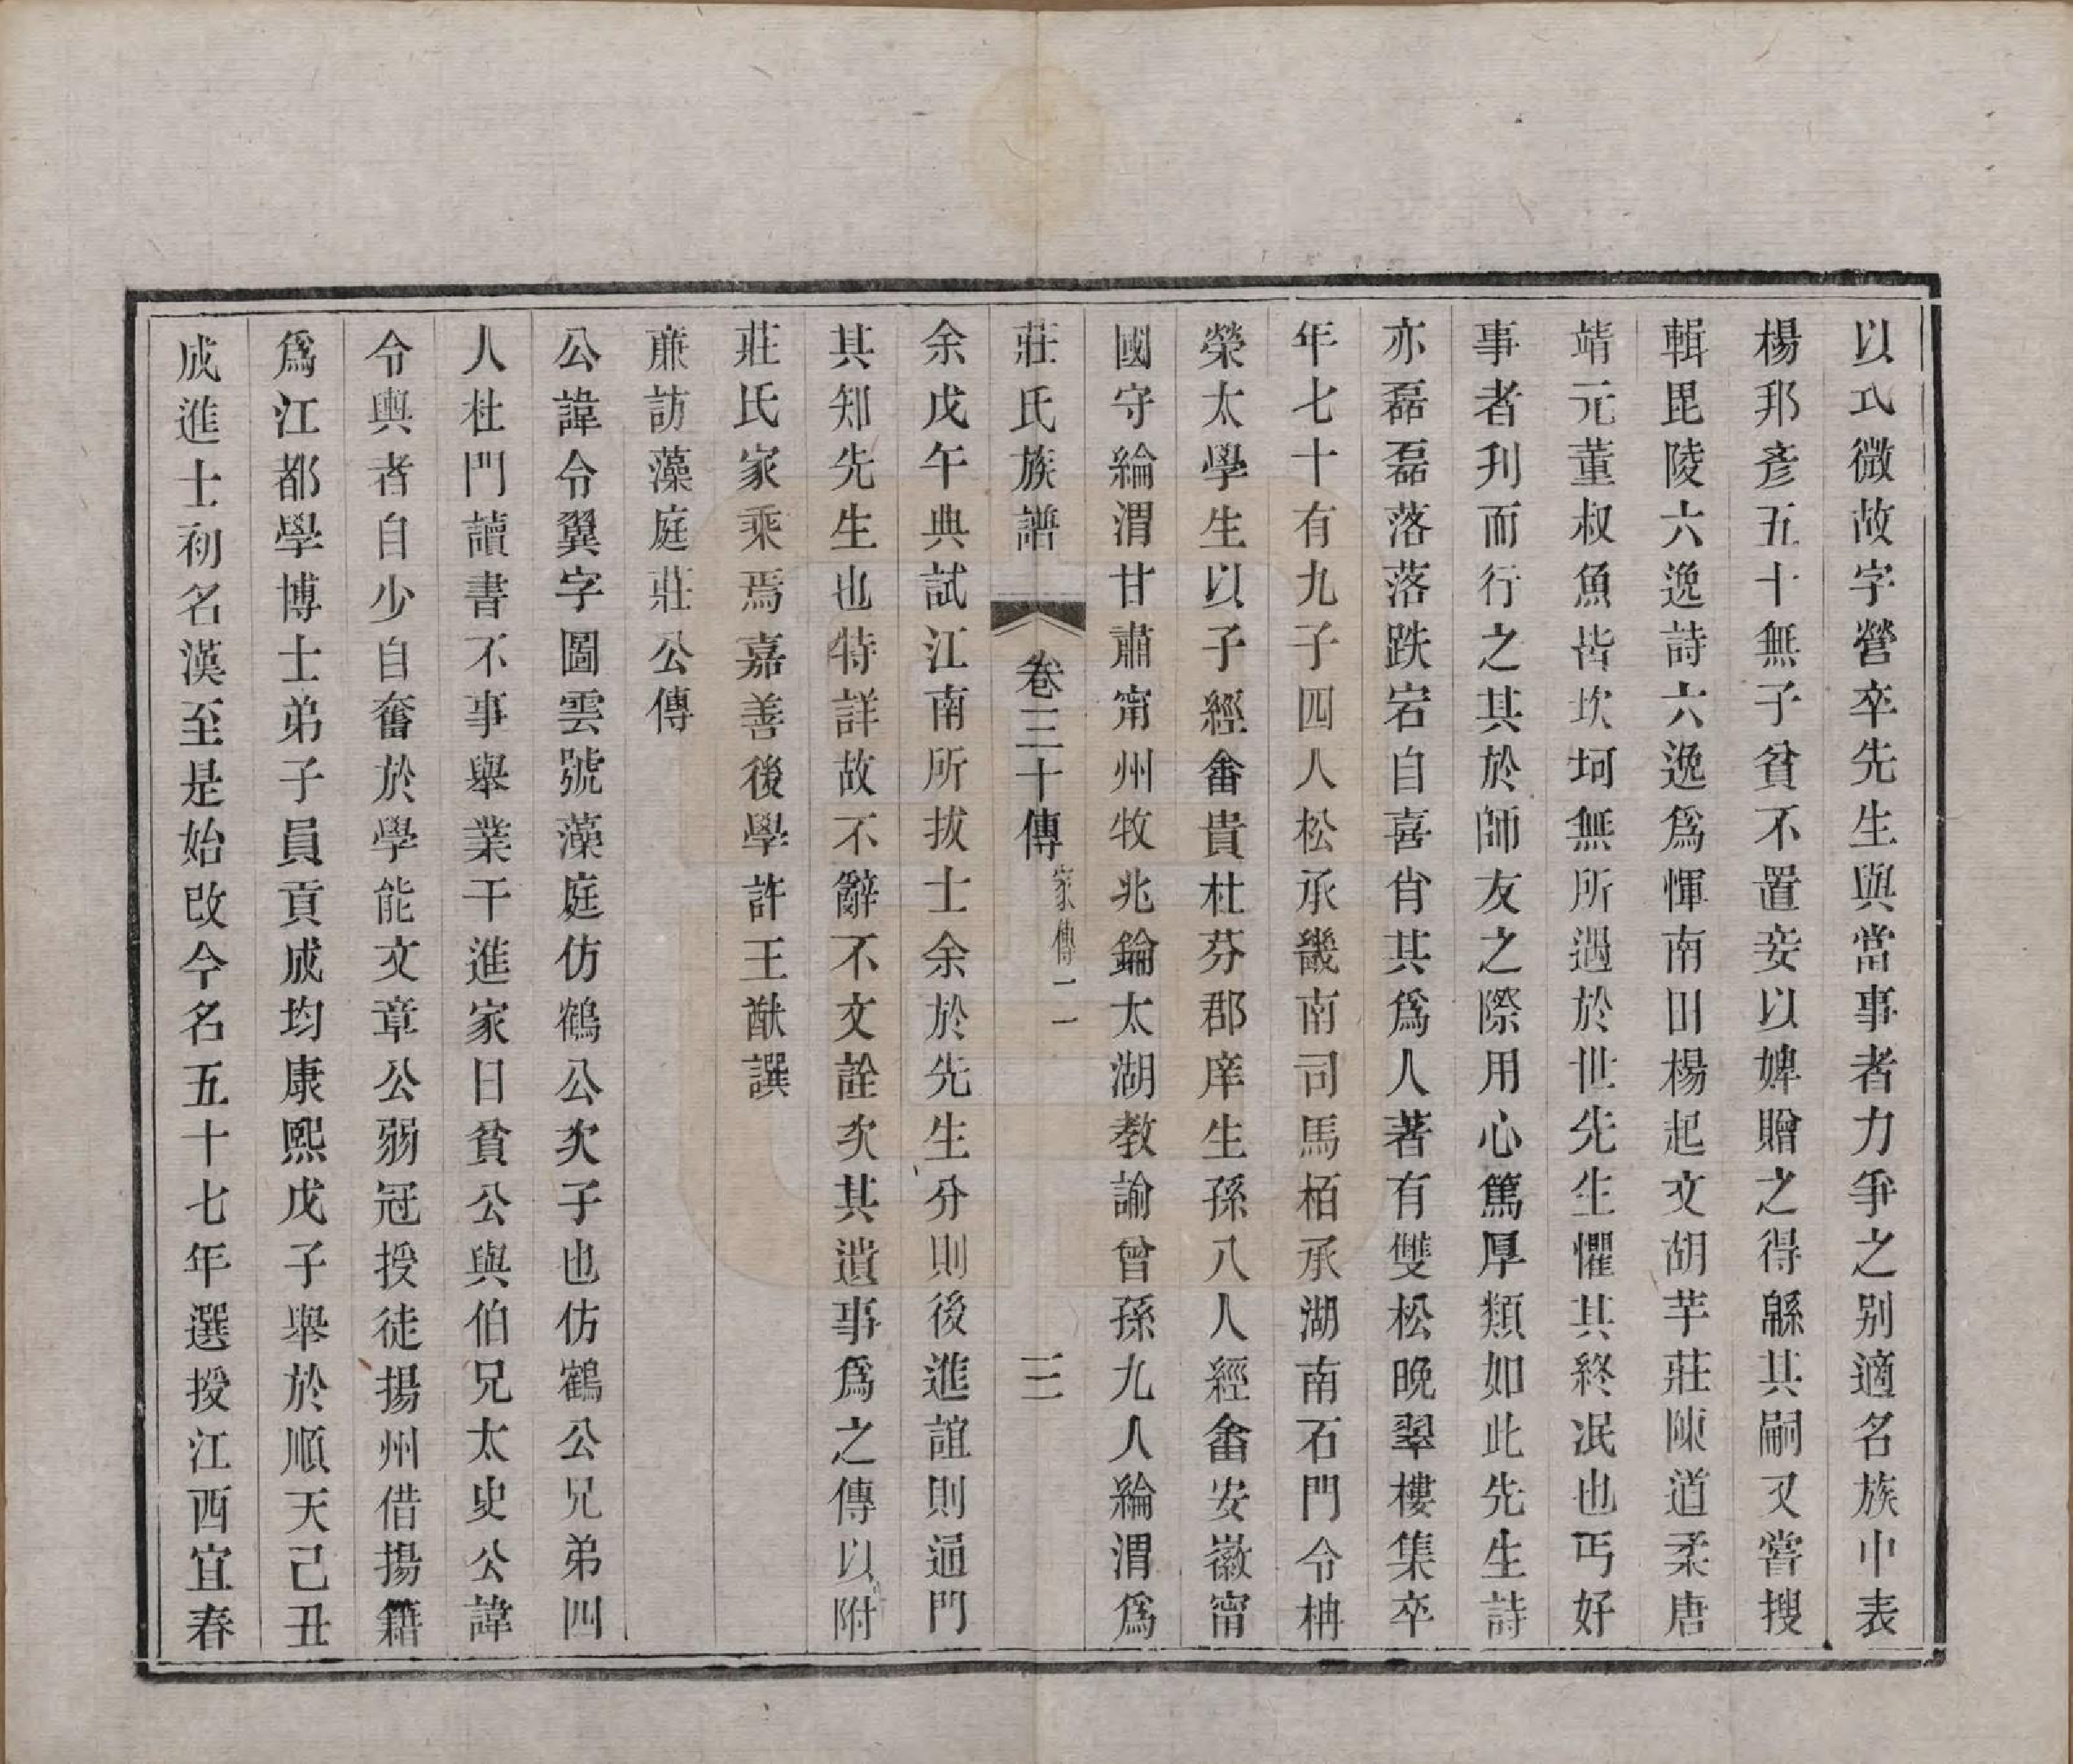 以式微故字營卒先生與當事者力爭之别適名族中表
楊邦彥五十無子貧不置妾以婢贈之得緜其嗣又嘗搜
輯毘陵六逸詩六逸爲惲南田楊起文胡芋莊陳道柔唐
靖元董叔魚皆坎坷無所遇於世先生懼其終泯也丐好
事者刋而行之其於師友之際用心篤厚類如此先生詩
亦磊磊落落跌宕自喜肖其爲人著有雙松晚翠樓集卒
年七十有九子四人松承畿南司馬栢承湖南石門令柟
榮太學生以子經畬貴杜芬郡庠生孫八人經畬安徽甯
國守綸渭甘肅甯州牧兆鑰太湖教諭曾孫九人綸渭爲
莊氏族譜 卷三十傳 家傳二一 三
余戊午典試江南所拔士余於先生分則後進誼則通門
其知先生也特詳故不辭不文詮次其遺事爲之傳以附
莊氏家乘焉嘉善後學許王猷譔
亷訪藻庭莊公傳
公諱令翼字圖雲號藻庭仿鶴公次子也仿鶴公兄弟四
人杜門讀書不事舉業干進家日貧公與伯兄太史公諱
令輿者自少自奮於學能文章公弱冠授徒揚州借揚籍
爲江都學博士弟子員貢成均康熙戊子舉於順天己丑
成進士初名漢至是始改今名五十七年選授江西宜春